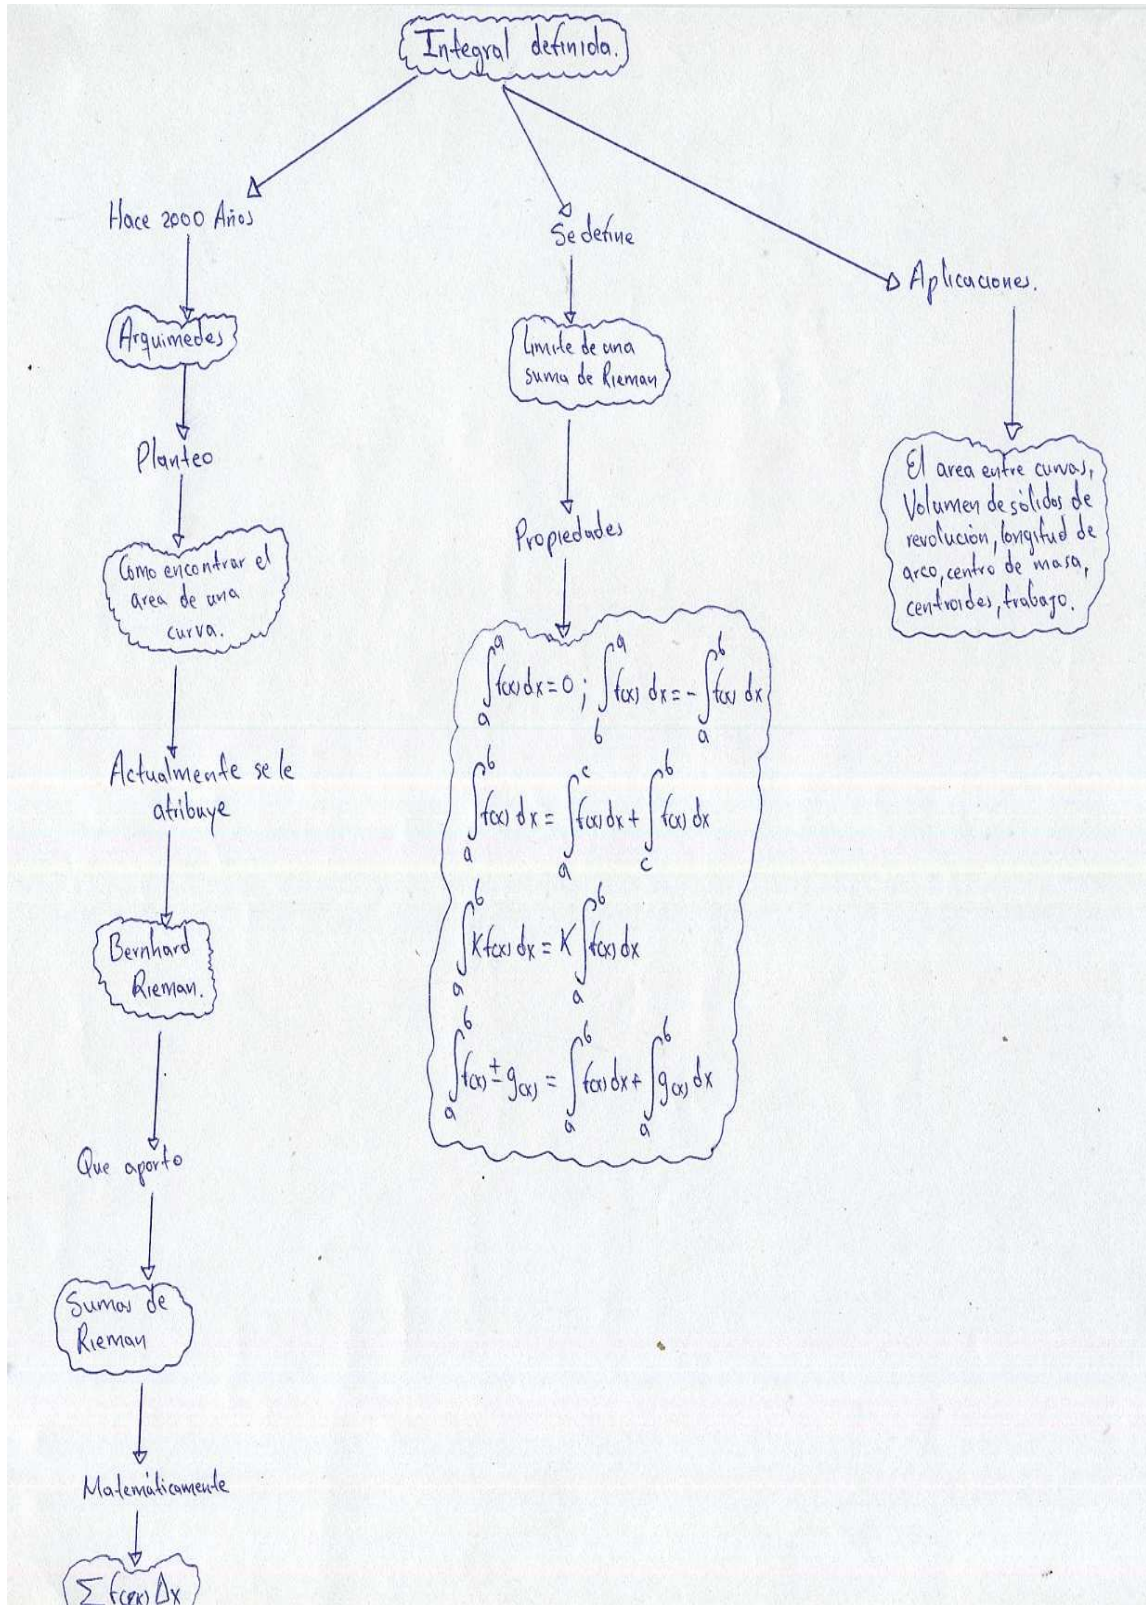 Integral definida.
Hace 2000 Años
Arquimedes
Planteo
Como encontrar el
area de una
curva.
Actualmente se le
atribuye
Bernhard
Rieman.
Que aporto
Sumas de
Rieman
Matemáticamente
∑ f(xₖ) Δx
Se define
Limite de una
suma de Rieman
Propiedades
∫ₐᵃ f(x) dx = 0 ; ∫_b^a f(x) dx = - ∫_a^b f(x) dx
∫_a^b f(x) dx = ∫_a^c f(x) dx + ∫_c^b f(x) dx
∫_a^b K f(x) dx = K ∫_a^b f(x) dx
∫_a^b f(x) ± g(x) = ∫_a^b f(x) dx + ∫_a^b g(x) dx
Aplicaciones.
El area entre curvas,
Volumen de sólidos de
revolución, longitud de
arco, centro de masa,
centroides, trabajo.